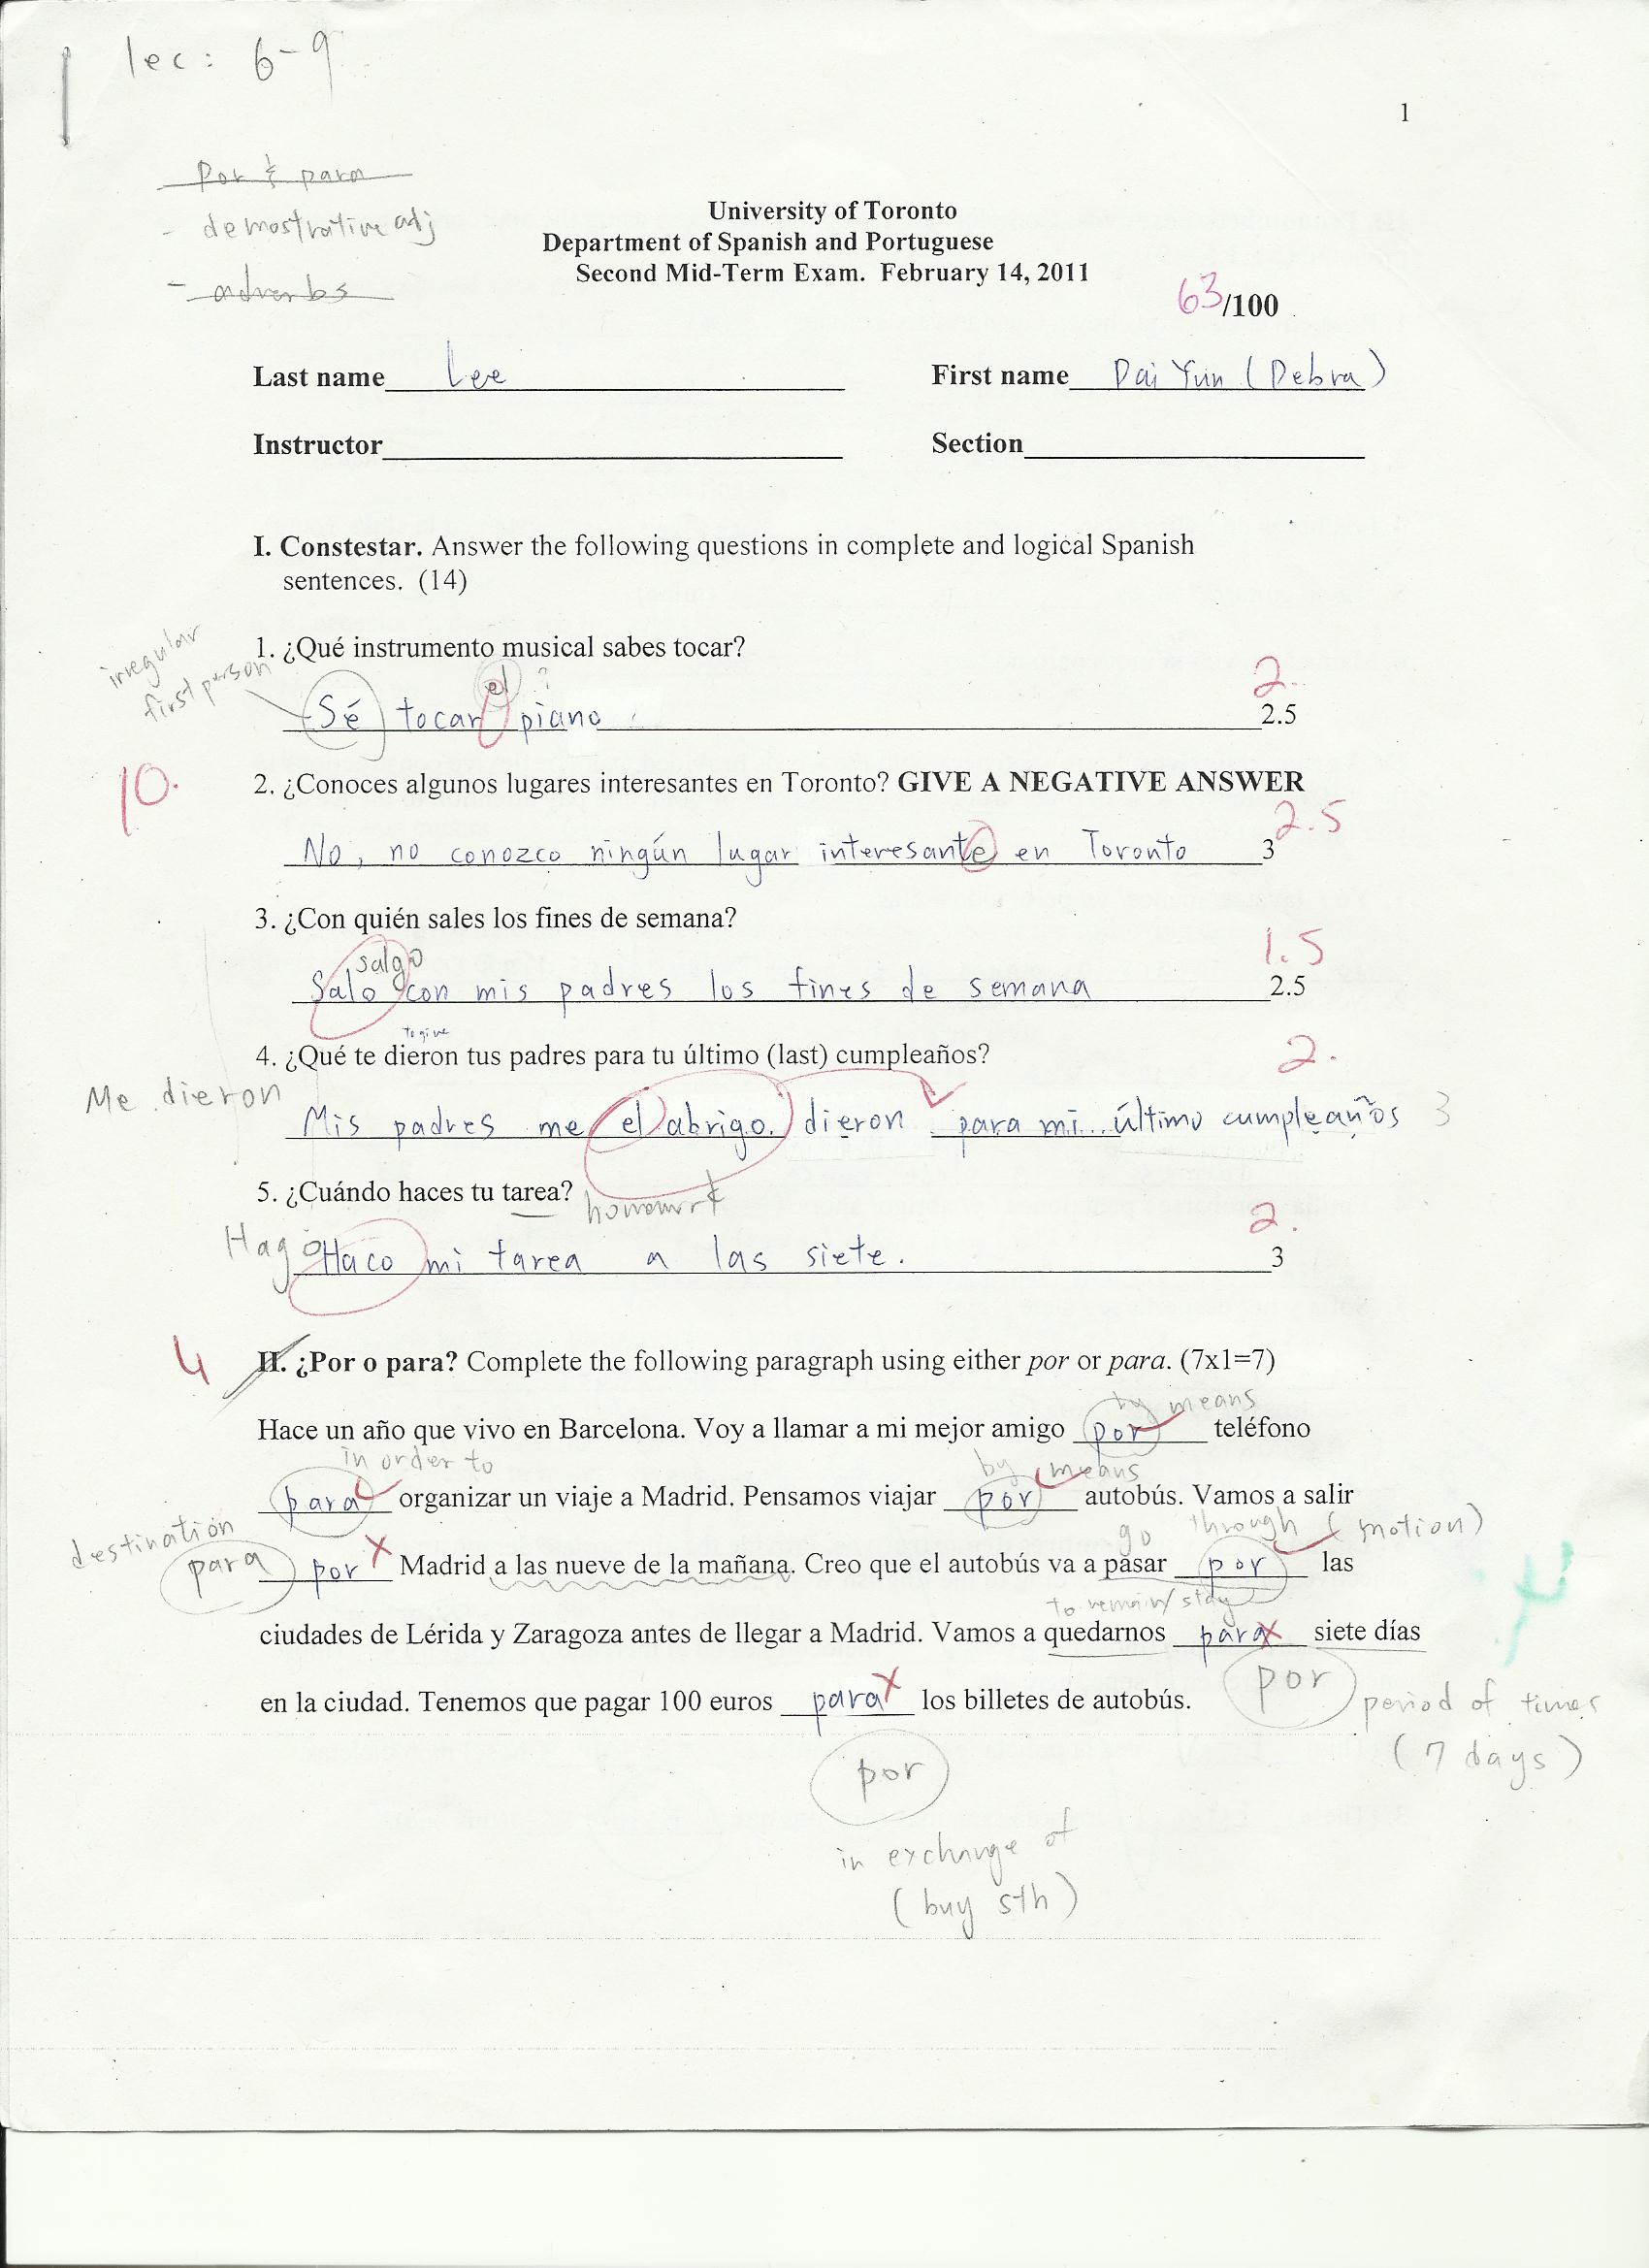 lec: 6-9
1
Por & para
- demostrative adj
- adverbs
University of Toronto
Department of Spanish and Portuguese
Second Mid-Term Exam. February 14, 2011
63/100
Last name Lee First name Dai Yun (Debra)
Instructor Section
I. Constestar. Answer the following questions in complete and logical Spanish
sentences. (14)
irregular
first person
1. ¿Qué instrumento musical sabes tocar?
el ? 2.
Sé tocar piano. 2.5
10.
2. ¿Conoces algunos lugares interesantes en Toronto? GIVE A NEGATIVE ANSWER
2.5
No, no conozco ningún lugar interesante en Toronto 3
3. ¿Con quién sales los fines de semana?
salgo 1.5
Salo con mis padres los fines de semana 2.5
to give
4. ¿Qué te dieron tus padres para tu último (last) cumpleaños?
2.
Me dieron
Mis padres me el abrigo. dieron para mi último cumpleaños 3
5. ¿Cuándo haces tu tarea?
2.
Hago
Haco mi tarea a las siete. 3
4
II. ¿Por o para? Complete the following paragraph using either por or para. (7x1=7)
by means
Hace un año que vivo en Barcelona. Voy a llamar a mi mejor amigo por teléfono
in order to by means
para organizar un viaje a Madrid. Pensamos viajar por autobús. Vamos a salir
destination go through (motion)
para por x Madrid a las nueve de la mañana. Creo que el autobús va a pasar por las
to remain/stay
ciudades de Lérida y Zaragoza antes de llegar a Madrid. Vamos a quedarnos para x siete días
por
en la ciudad. Tenemos que pagar 100 euros para x los billetes de autobús.
period of times
(7 days)
por
in exchange of
(buy sth)